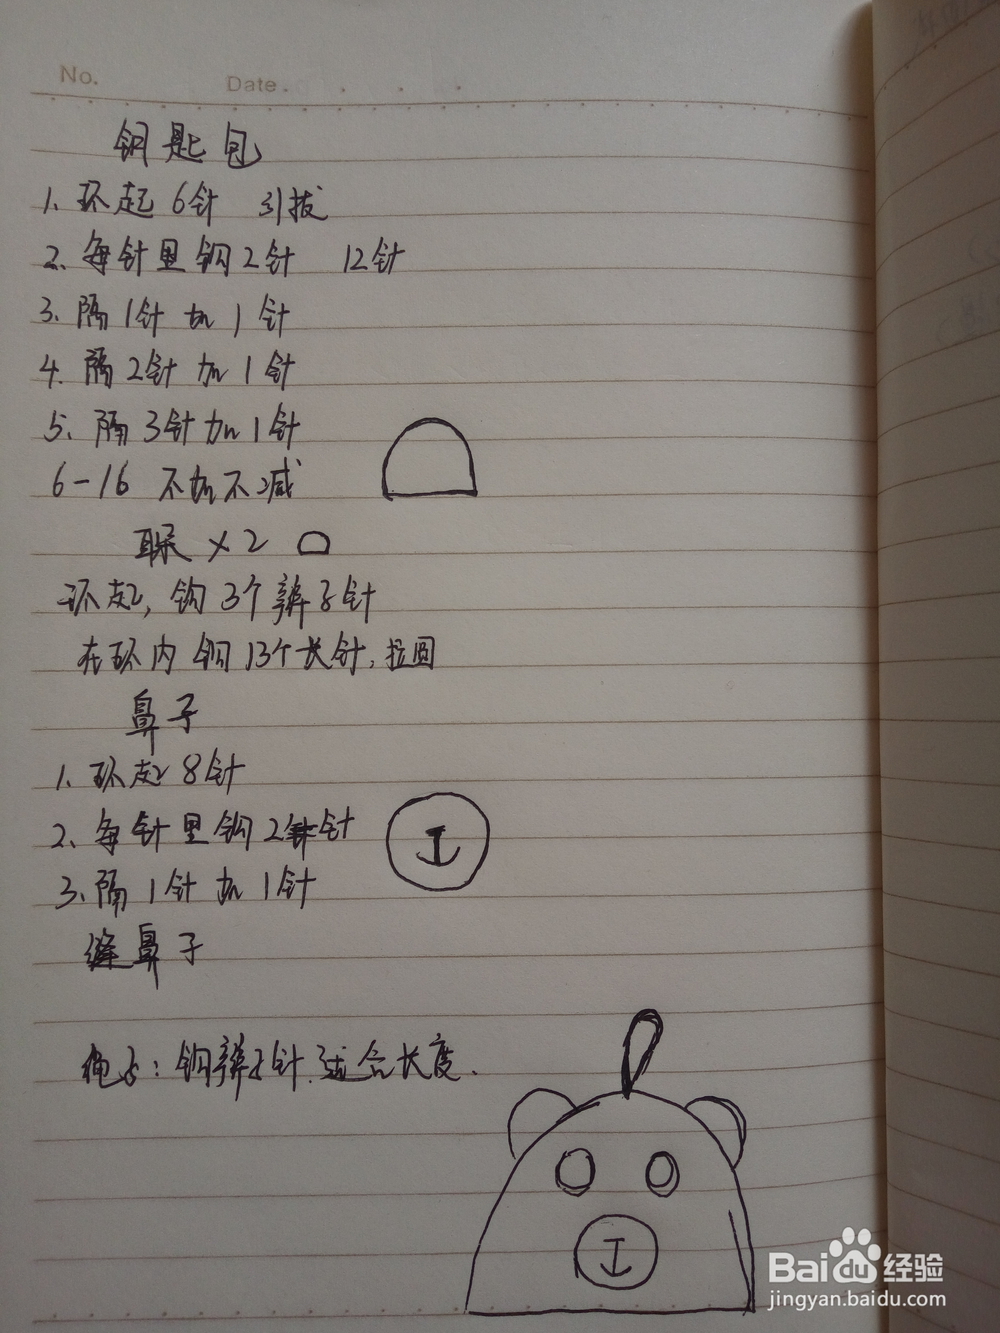 No.
Date.
钥匙包
1. 环起 6针 引拔
2. 每针里钩2针 12针
3. 隔1针加1针
4. 隔2针加1针
5. 隔3针加1针
6-16 不加不减
耳朵 ×2
环起, 钩3个辫子针
在环内钩13个长针, 拉圆
鼻子
1. 环起8针
2. 每针里钩2针
3. 隔1针加1针
缝鼻子
绳子: 钩辫子针. 适合长度.
Baidu 经验
jingyan.baidu.com